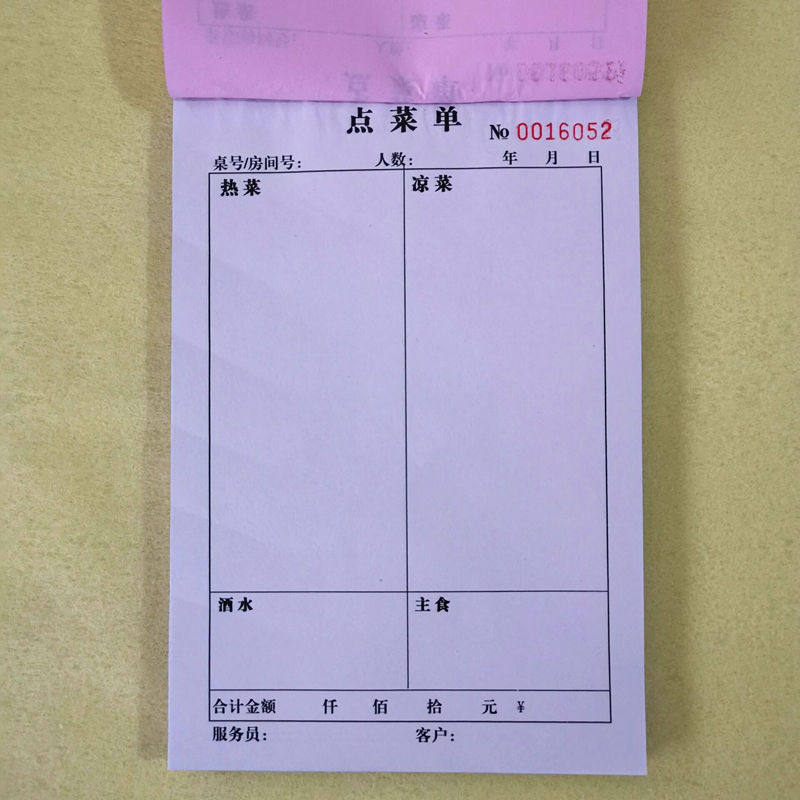 点菜单
№ 0016052
桌号/房间号: 人数: 年 月 日
热菜 凉菜
酒水 主食
合计金额 仟 佰 拾 元 ¥
服务员: 客户: